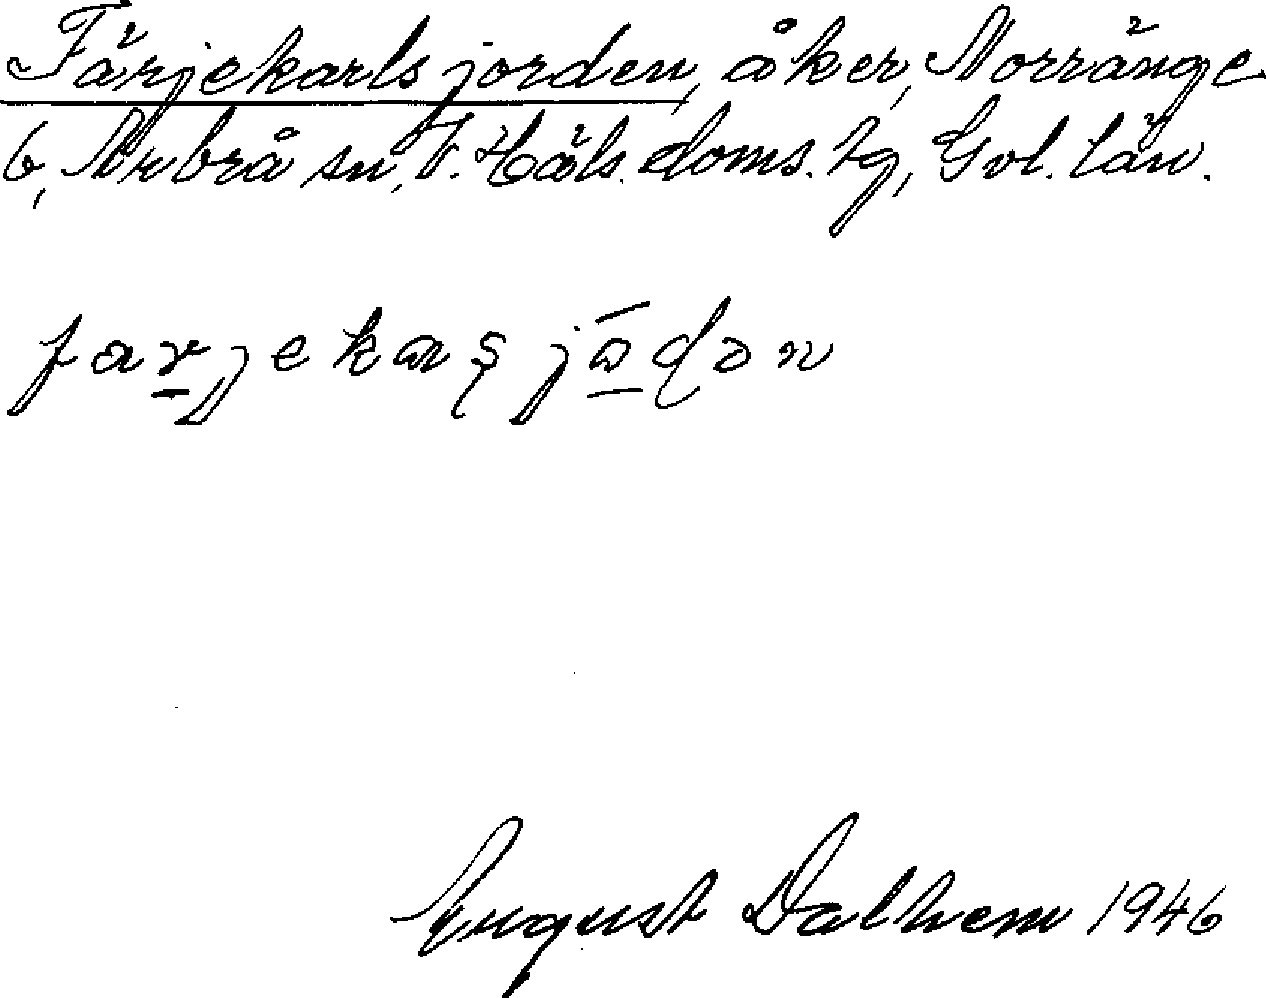 Färjekarlsjorden, åker, Norränge
6, Arbrå sn, V. Häls. doms. tg, Gvl. län.
August Dalhem 1946